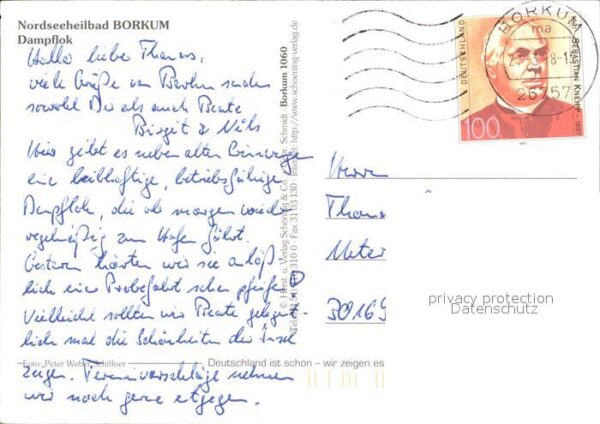 Nordseeheilbad BORKUM
Dampflok
Hallo lieber Thomas,
viele Grüße von Borkum senden
sowohl Dir als auch Beate
Birgit & Nils
Hier gibt es neben alten
eine leibhaftige, betriebsfähige
Dampflok, die ab morgen wieder
regelmäßig zum Hafen fährt.
Gestern hörten wir sie anläß-
lich einer Probefahrt schon pfeifen
Vielleicht sollten wir Beate gelegent-
lich mal die Schönheiten der Insel
zeigen. Terminvorschläge nehmen
wir noch gerne entgegen.
Foto: Peter Weber, Schiffner
Deutschland ist schön – wir zeigen es
Borkum 1060
http://www.schoening-verlag.de
© Herst. u. Verlag Schöning & Co. Schmidt
BORKUM
26757
DEUTSCHLAND
SEBASTIAN KNEIPP 1897
100
Herrn
30169
privacy protection
Datenschutz